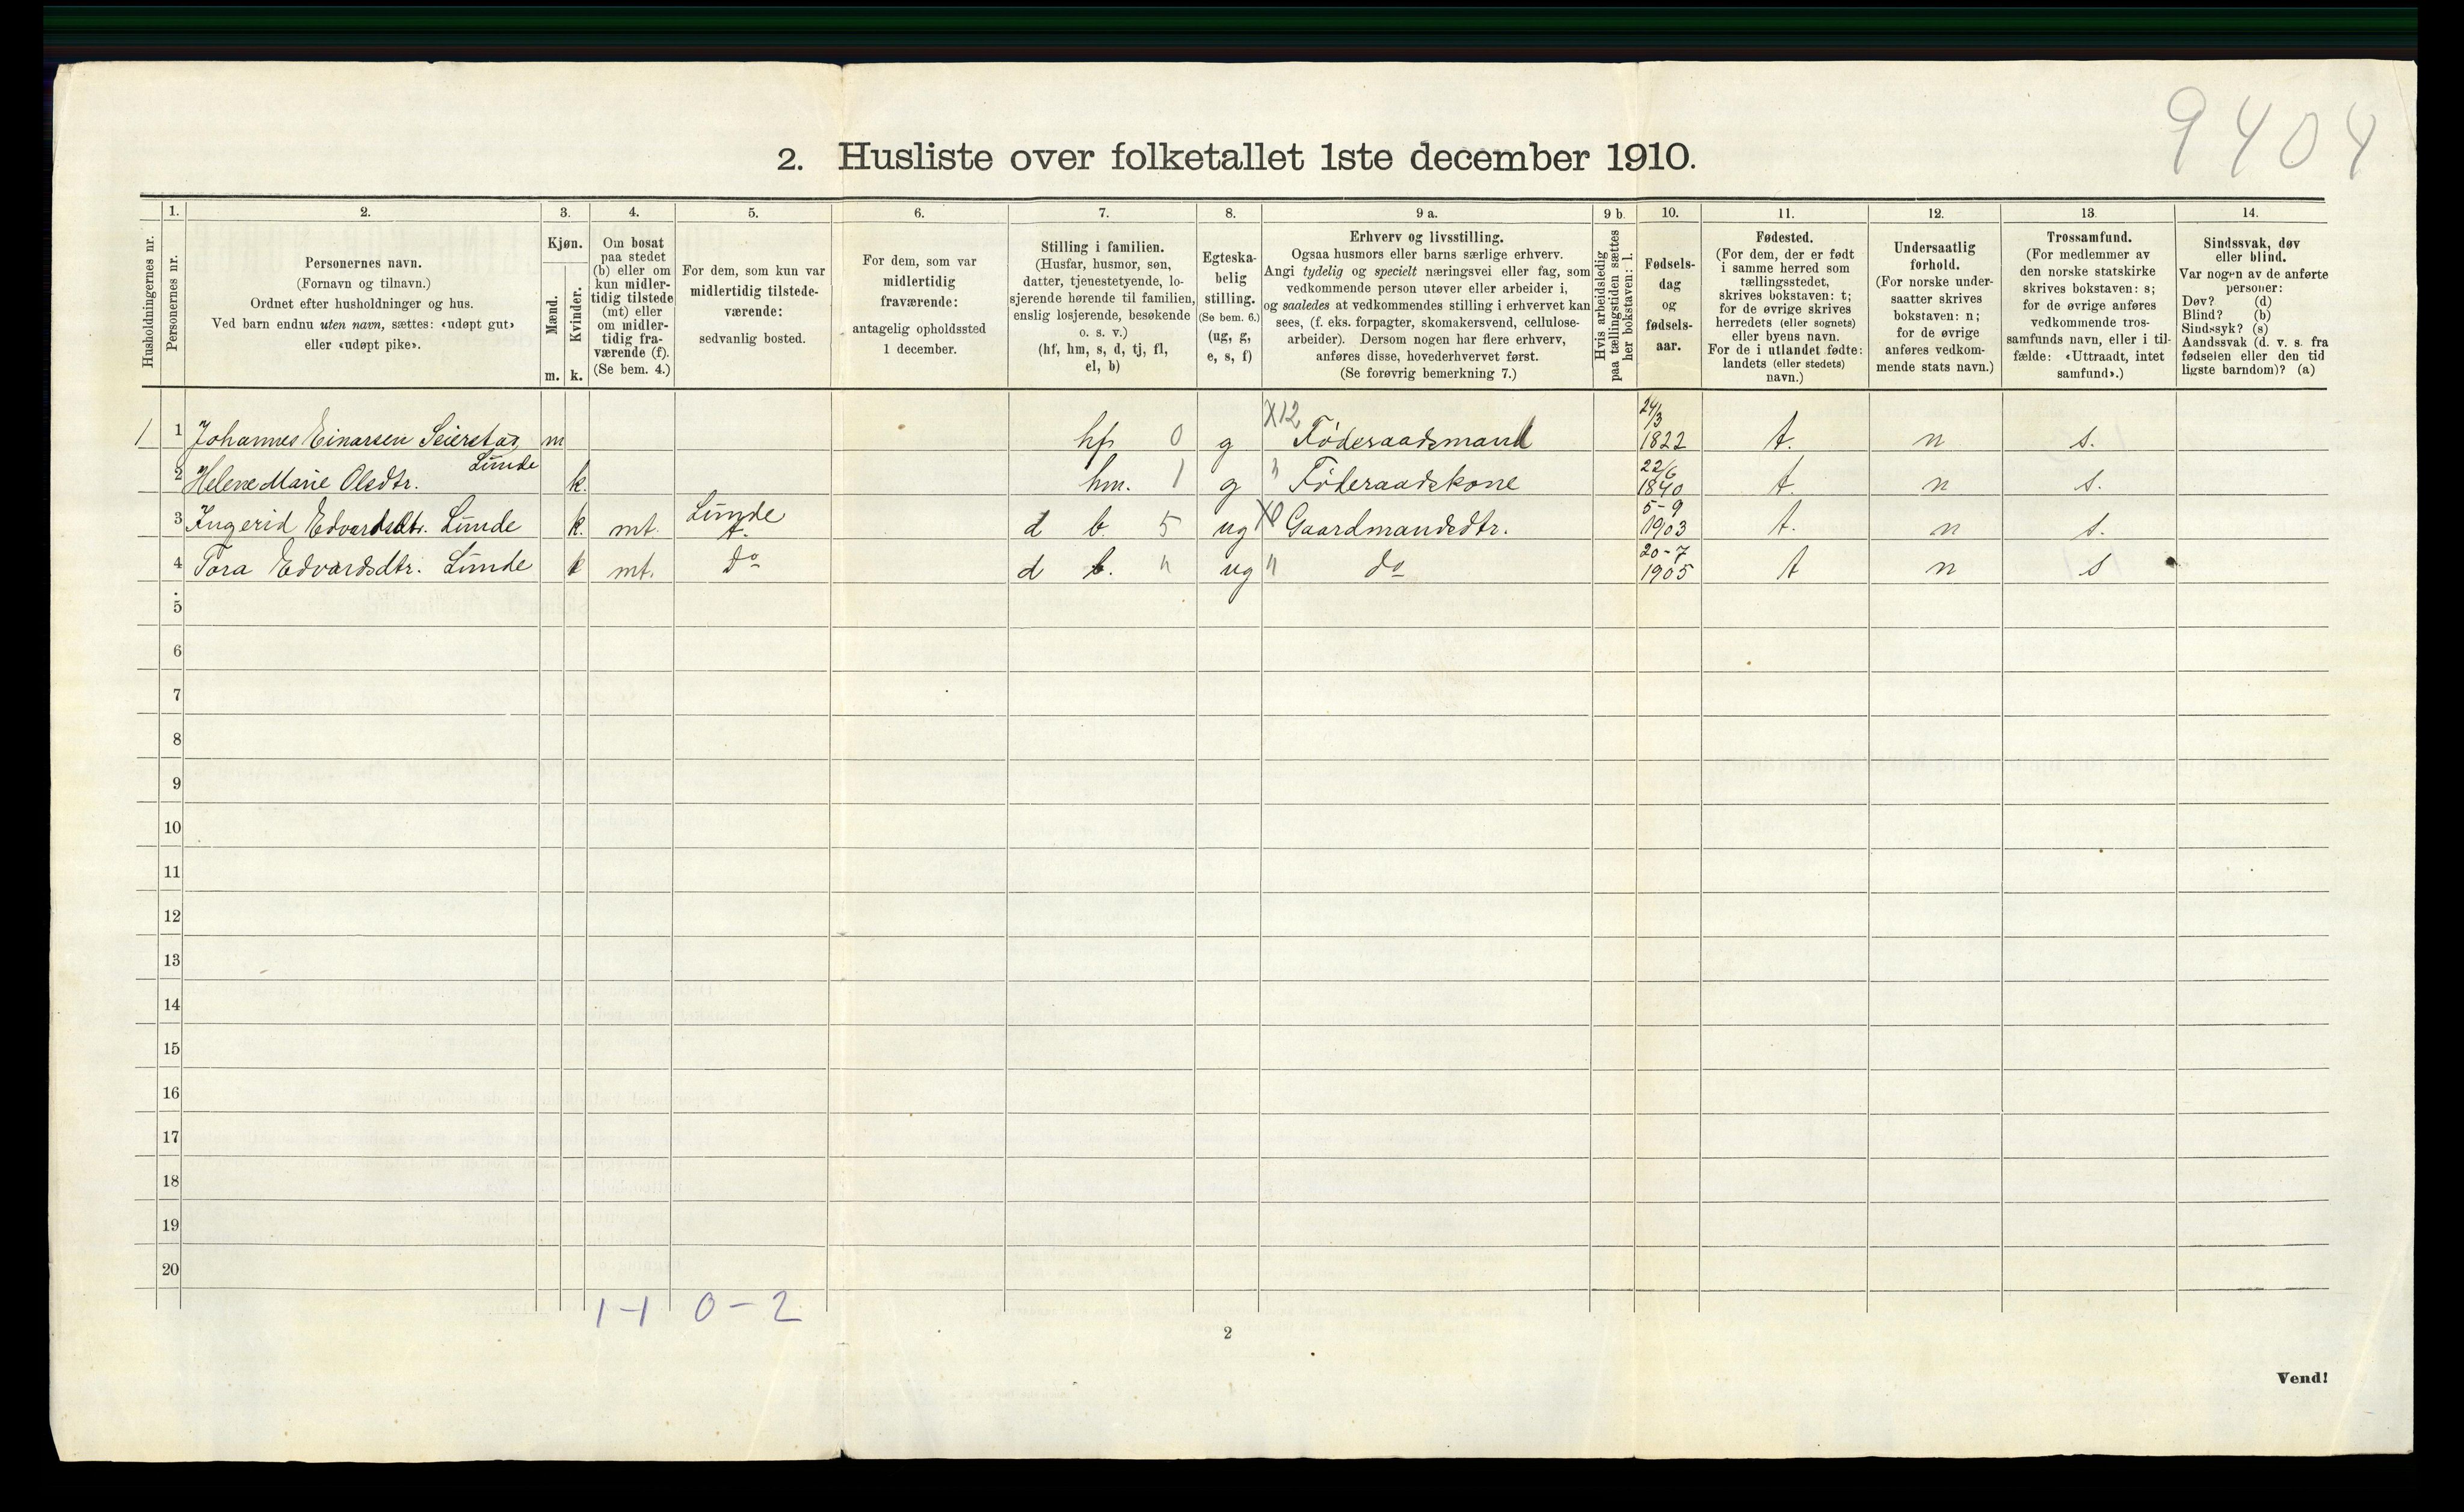 9404
2. Husliste over folketallet 1ste december 1910.
Husholdningernes nr.
1.
Personernes nr.
2.
Personernes navn.
(Fornavn og tilnavn.)
Ordnet efter husholdninger og hus.
Ved barn endnu uten navn, sættes: «udøpt gut»
eller «udøpt pike».
3.
Kjøn.
Mænd.
Kvinder.
m. k.
4.
Om bosat
paa stedet
(b) eller om
kun midler-
tidig tilstede
(mt) eller
om midler-
tidig fra-
værende (f).
(Se bem. 4.)
5.
For dem, som kun var
midlertidig tilstede-
værende:
sedvanlig bosted.
6.
For dem, som var
midlertidig
fraværende:
antagelig opholdssted
1 december.
7.
Stilling i familien.
(Husfar, husmor, søn,
datter, tjenestetyende, lo-
sjerende hørende til familien,
enslig losjerende, besøkende
o. s. v.)
(hf, hm, s, d, tj, fl,
el, b)
8.
Egteska-
belig
stilling.
(Se bem. 6.)
(ug, g,
e, s, f)
9 a.
Erhverv og livsstilling.
Ogsaa husmors eller barns særlige erhverv.
Angi tydelig og specielt næringsvei eller fag, som
vedkommende person utøver eller arbeider i,
og saaledes at vedkommendes stilling i erhvervet kan
sees, (f. eks. forpagter, skomakersvend, cellulose-
arbeider). Dersom nogen har flere erhverv,
anføres disse, hovederhvervet først.
(Se forøvrig bemerkning 7.)
9 b.
Hvis arbeidsledig
paa tællingstiden sættes
her bokstaven: l.
10.
Fødsels-
dag
og
fødsels-
aar.
11.
Fødested.
(For dem, der er født
i samme herred som
tællingsstedet,
skrives bokstaven: t;
for de øvrige skrives
herredets (eller sognets)
eller byens navn.
For de i utlandet fødte:
landets (eller stedets)
navn.)
12.
Undersaatlig
forhold.
(For norske under-
saatter skrives
bokstaven: n;
for de øvrige
anføres vedkom-
mende stats navn.)
13.
Trossamfund.
(For medlemmer av
den norske statskirke
skrives bokstaven: s;
for de øvrige anføres
vedkommende tros-
samfunds navn, eller i til-
fælde: «Uttraadt, intet
samfund».)
14.
Sindssvak, døv
eller blind.
Var nogen av de anførte
personer:
Døv? (d)
Blind? (b)
Sindssyk? (s)
Aandssvak (d. v. s. fra
fødselen eller den tid
ligste barndom)? (a)
1 1 Johannes Einarsen Seierstag m hf 0 g X12 Føderaadsmand 24/3 1822 t. n s.
2 Helene Marie Olsdtr. Lunde k. hm. 1 g " Føderaadskone 22/6 1840 t. n s.
3 Ingerid Edvardsdtr. Lunde k. mt. Lunde t. d b. 5 ug Gaardmandsdtr. 5-9 1903 t. n s.
4 Tora Edvardsdtr. Lunde k mt. do d b. " ug " do 20-7 1905 t n s
5
6
7
8
9
10
11
12
13
14
15
16
17
18
19
20
1-1 0-2
2
Vend!